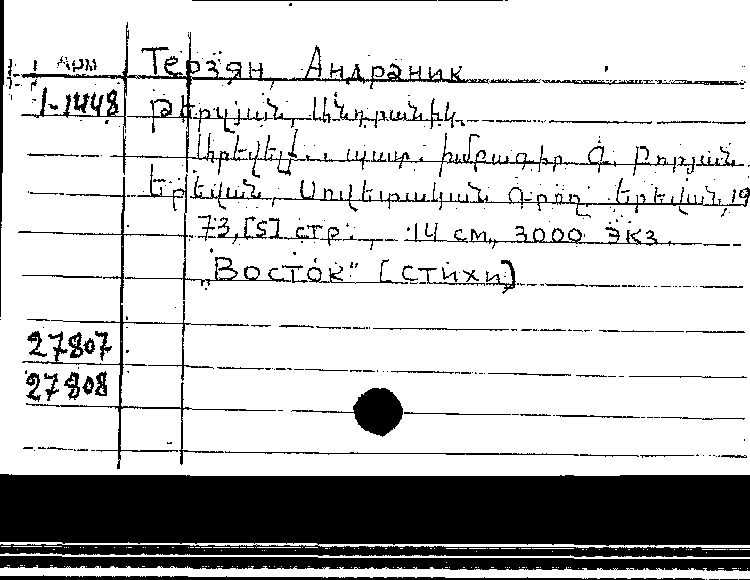 Арм Терзян, Андраник
1-1448 Թերզյան, Անդրանիկ.
Արեվելք. : պատ. խմբագիր Գ. Բորյան
Երեվան, Սովետական Գրող. Երեվան, 19
73, [5] стр., 14 см., 3000 экз.
„Восток" [стихи]
27807
27808